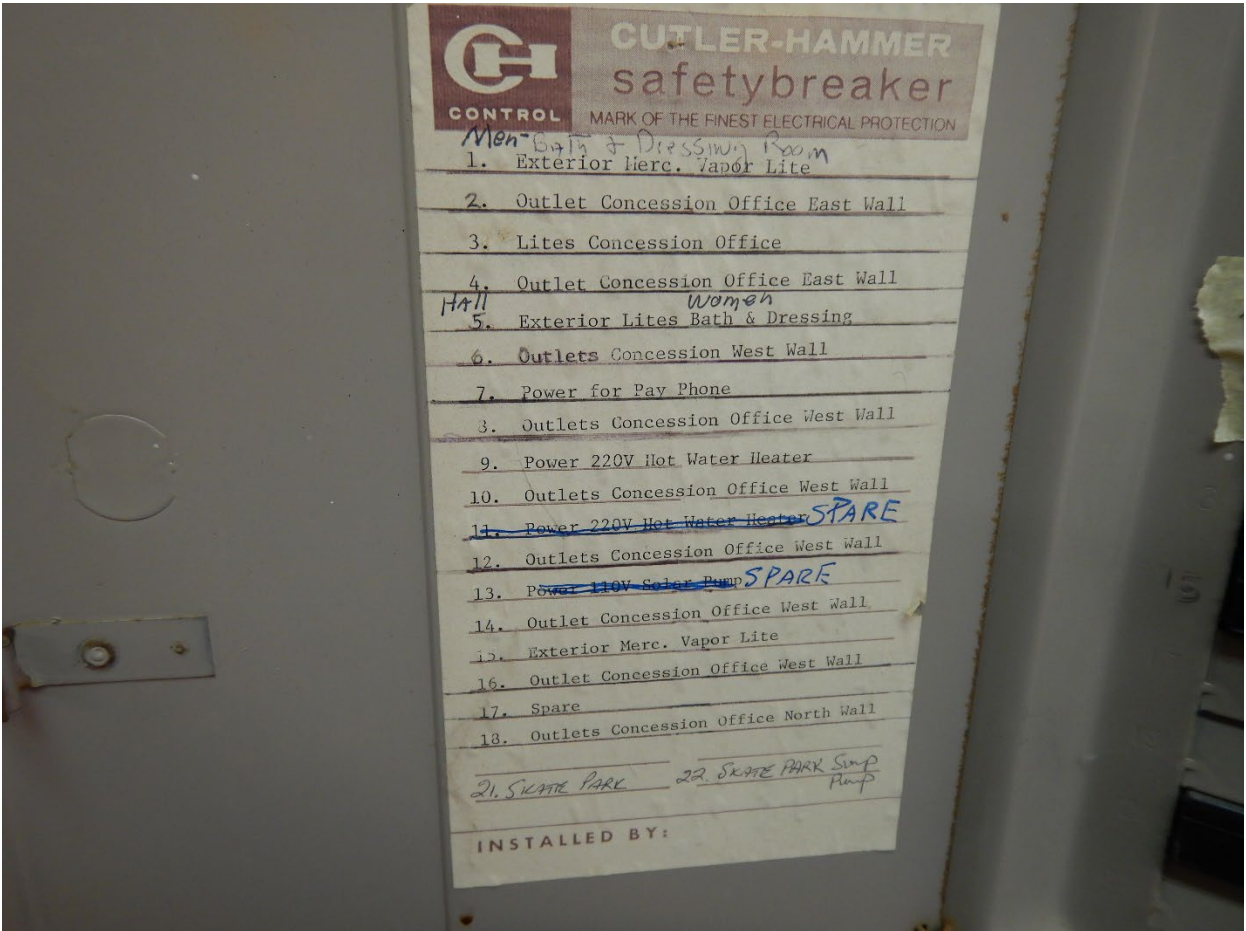 CH
CONTROL
CUTLER-HAMMER
safetybreaker
MARK OF THE FINEST ELECTRICAL PROTECTION
Men- Bath & Dressing Room
1. Exterior Merc. Vapor Lite
2. Outlet Concession Office East Wall
3. Lites Concession Office
4. Outlet Concession Office East Wall
HAll Women
5. Exterior Lites Bath & Dressing
6. Outlets Concession West Wall
7. Power for Pay Phone
8. Outlets Concession Office West Wall
9. Power 220V Hot Water Heater
10. Outlets Concession Office West Wall
11. Power 220V Hot Water Heater SPARE
12. Outlets Concession Office West Wall
13. Power 110V Solar Pump SPARE
14. Outlet Concession Office West Wall
15. Exterior Merc. Vapor Lite
16. Outlet Concession Office West Wall
17. Spare
18. Outlets Concession Office North Wall
21. SKATE PARK 22. SKATE PARK Sump
Pump
INSTALLED BY: